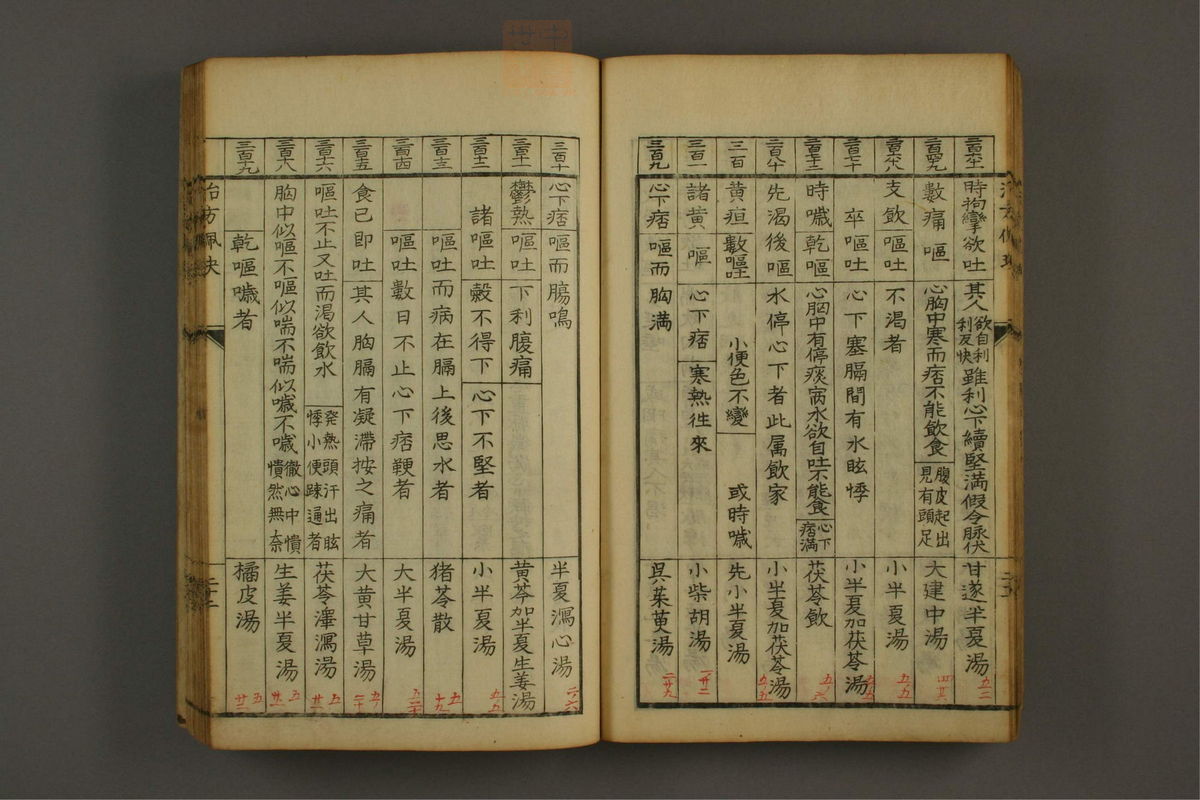 時拘攣欲吐 其人 欲自利利反快 雖利心下續堅滿假令脉伏 甘遂半夏湯
數痛嘔 心胸中寒而痞不能飲食 腹皮起出見有頭足 大建中湯
支飲 嘔吐 不渴者 小半夏湯
卒嘔吐 心下塞膈間有水眩悸 小半夏加茯苓湯
時噦乾嘔 心胸中有停痰宿水欲自吐不能食 心下痞滿 茯苓飲
先渴後嘔 水停心下者此属飲家 小半夏加茯苓湯
三百 黄疸 數嘔吐 小便色不變 或時噦 先小半夏湯
三百一 諸黄 嘔 心下痞 寒熱徃來 小柴胡湯
三百九 心下痞 嘔而胸滿 呉茱萸湯
三百十 心下痞 嘔而腸鳴 半夏瀉心湯
三百十一 鬱熱 嘔吐 下利腹痛 黄芩加半夏生姜湯
三百十二 諸嘔吐 穀不得下 心下不堅者 小半夏湯
三百十三 嘔吐而病在膈上後思水者 猪苓散
三百十四 嘔吐 數日不止心下痞鞕者 大半夏湯
三百十五 食已即吐 其人胸膈有凝滞按之痛者 大黄甘草湯
三百十六 嘔吐不止又吐而渴欲飲水 発熱頭汗出眩悸小便踈通者 茯苓澤瀉湯
三百十八 胸中似嘔不嘔似喘不喘似噦不噦 徹心中憒憒然無奈 生姜半夏湯
三百十九 乾嘔噦者 橘皮湯
治方佩夬